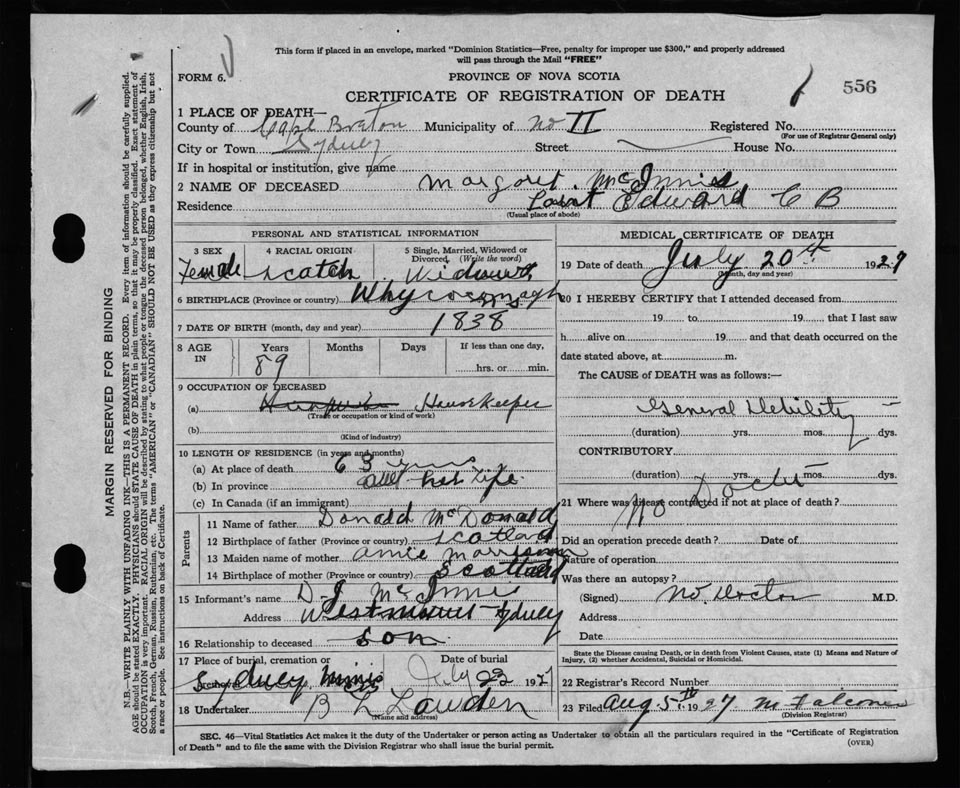 This form if placed in an envelope, marked "Dominion Statistics—Free, penalty for improper use $300," and properly addressed
will pass through the Mail "FREE"
FORM 6.
PROVINCE OF NOVA SCOTIA
CERTIFICATE OF REGISTRATION OF DEATH
556
1 PLACE OF DEATH—
County of Cape Breton Municipality of No II Registered No.
(For use of Registrar General only)
City or Town Sydney Street House No.
If in hospital or institution, give name
2 NAME OF DECEASED Margaret McInnis
Residence Edward C B
(Usual place of abode)
PERSONAL AND STATISTICAL INFORMATION
3 SEX
Female
4 RACIAL ORIGIN
Scotch
5 Single, Married, Widowed or
Divorced (Write the word)
6 BIRTHPLACE (Province or country) Whycocomagh
7 DATE OF BIRTH (month, day and year) 1838
8 AGE
IN
Years
89
Months
Days
If less than one day,
hrs. or min.
9 OCCUPATION OF DECEASED
(a) Housekeeper
(Trade or occupation or kind of work)
(b)
(Kind of industry)
10 LENGTH OF RESIDENCE (in years and months)
(a) At place of death 63 years
(b) In province all her life
(c) In Canada (if an immigrant)
Parents
11 Name of father Donald McDonald
12 Birthplace of father (Province or country) Scotland
13 Maiden name of mother Annie Morrison
14 Birthplace of mother (Province or country) Scotland
15 Informant's name D. J. McInnis
Address Westmount Sydney
16 Relationship to deceased son
17 Place of burial, cremation or
Sydney Mines
Date of burial
July 22 1927
18 Undertaker B L Lawden
(Name and address)
MEDICAL CERTIFICATE OF DEATH
19 Date of death July 20th 1927
(Month, day and year)
20 I HEREBY CERTIFY that I attended deceased from
19 to 19 that I last saw
h alive on 19 and that death occurred on the
date stated above, at m.
The CAUSE of DEATH was as follows:—
General Debility
(duration) yrs. mos. dys.
CONTRIBUTORY
(duration) yrs. mos. dys.
21 Where was disease contracted if not at place of death?
No Doctor
Did an operation precede death? Date of
Nature of operation
Was there an autopsy?
(Signed) No Doctor M.D.
Address
Date
State the Disease causing Death, or in death from Violent Causes, state (1) Means and Nature of
Injury, (2) whether Accidental, Suicidal or Homicidal.
22 Registrar's Record Number
23 Filed Aug 5th 1927 M Falconer
(Division Registrar)
SEC. 46—Vital Statistics Act makes it the duty of the Undertaker or person acting as Undertaker to obtain all the particulars required in the "Certificate of Registration
of Death" and to file the same with the Division Registrar who shall issue the burial permit.
(OVER)
MARGIN RESERVED FOR BINDING
N.B.—WRITE PLAINLY WITH UNFADING INK—THIS IS A PERMANENT RECORD. Every item of information should be carefully supplied.
AGE should be stated EXACTLY. PHYSICIANS should STATE CAUSE OF DEATH in plain terms, so that it may be properly classified. Exact statement of
OCCUPATION is very important. RACIAL ORIGIN will be described by stating to what people or tongue the deceased person belonged, whether English, Irish,
Scotch, French, German, Russian, Ruthenian, etc. The terms "AMERICAN" or "CANADIAN" SHOULD NOT BE USED as they express citizenship but not
a race or people. See instructions on back of Certificate.